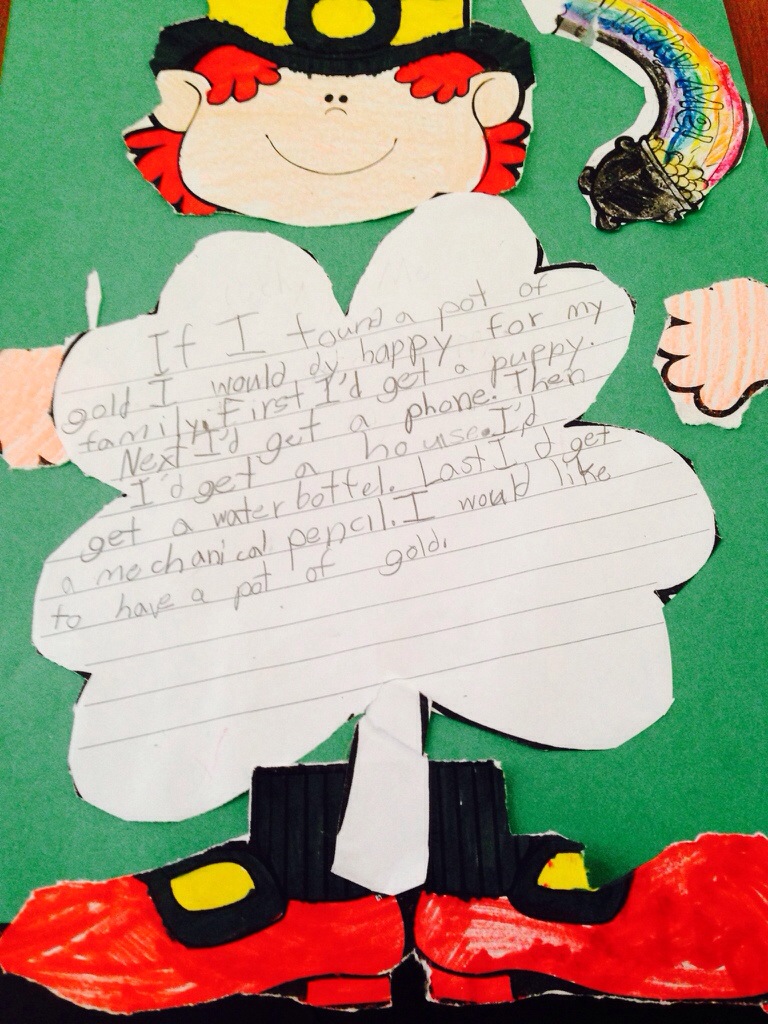 Lucky Me!
If I found a pot of
gold I would dy happy for my
family. First I'd get a puppy.
Next I'd get a phone. Then
I'd get a house. I'd
get a water bottel. Last I'd get
a mechanical pencil. I would like
to have a pot of gold.